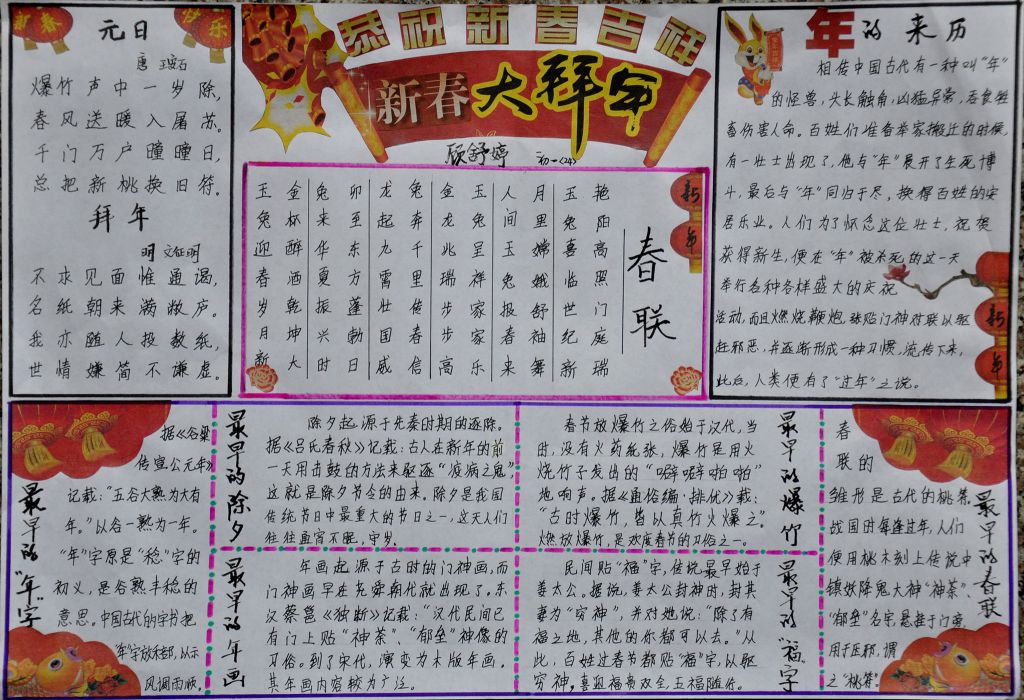 新春
快乐
元日
唐 王安石
爆竹声中一岁除,
春风送暖入屠苏.
千门万户曈曈日,
总把新桃换旧符.
拜年
明 文征明
不求见面惟通谒,
名纸朝来满敝庐。
我亦随人投数纸,
世情嫌简不谦虚。
恭祝新春吉祥
新春大拜年
顾舒婷 初一(24)
玉兔迎春岁月新
金杯醉酒乾坤大
兔来华夏振兴时
卯至东方蓬勃日
龙起九霄壮国威
兔奔千里传春信
金龙兆瑞步步高
玉兔呈祥家家乐
人间玉兔报春来
月里嫦娥舒袖舞
玉兔喜临世纪新
艳阳高照门庭瑞
春联
新年
年的来历
相传中国古代有一种叫“年”
的怪兽,头长触角,凶猛异常,吞食牲
畜伤害人命。百姓们准备举家搬迁的时候,
有一壮士出现了,他与“年”展开了生死博
斗,最后与“年”同归于尽,换得百姓的安
居乐业。人们为了怀念这位壮士,祝贺
获得新生,便在“年”被杀死的这一天
举行各种各样盛大的庆祝
活动,而且燃烧鞭炮,张贴门神对联以驱
赶邪恶,并逐渐形成一种习惯,流传下来,
此后,人类便有了“过年”之说。
新年
最早的“年”字
据《谷梁
传宣公元年》
记载:“五谷大熟为大有
年。”以谷一熟为一年。
“年”字原是“稔”字的
初义,是谷熟丰稔的
意思。中国古代的字书把
“年”字放禾部,以示
风调雨顺。
最早的除夕
除夕起源于先秦时期的逐除。
据《吕氏春秋》记载:古人在新年的前
一天用击鼓的方法来驱逐“疫病之鬼”,
这就是除夕节令的由来。除夕是我国
传统节日中最重大的节日之一,这天人们
往往通宵不眠,守岁。
春节放爆竹之俗始于汉代,当
时,没有火药纸张,爆竹是用火
烧竹子发出的“噼噼啪啪”
地响声。据《通俗编·排优》载:
“古时爆竹,皆以真竹火爆之”。
燃放爆竹,是欢度春节的习俗之一。
最早的爆竹
最早的年画
年画起源于古时的门神画,而
门神画早在尧舜朝代就出现了。东
汉蔡邕《独断》记载:“汉代民间已
有门上贴“神荼”、“郁垒”神像的
习俗。到了宋代,演变为木版年画。
其年画内容较为广泛。
民间贴“福”字,传说最早始于
姜太公。据说,姜太公封神时,封其
妻为“穷神”,并对她说:“除了有
福之地,其他的你都可以去。”从
此,百姓过春节都贴“福”字,以驱
穷神,喜迎福贵双全,五福随临。
最早的“福”字
春
联的
雏形是古代的桃符。
战国时每逢过年,人们
便用桃木刻上传说中
镇妖降鬼大神“神荼”、
“郁垒”名字悬挂于门旁,
用于压邪,谓
之“桃符”。
最早的春联